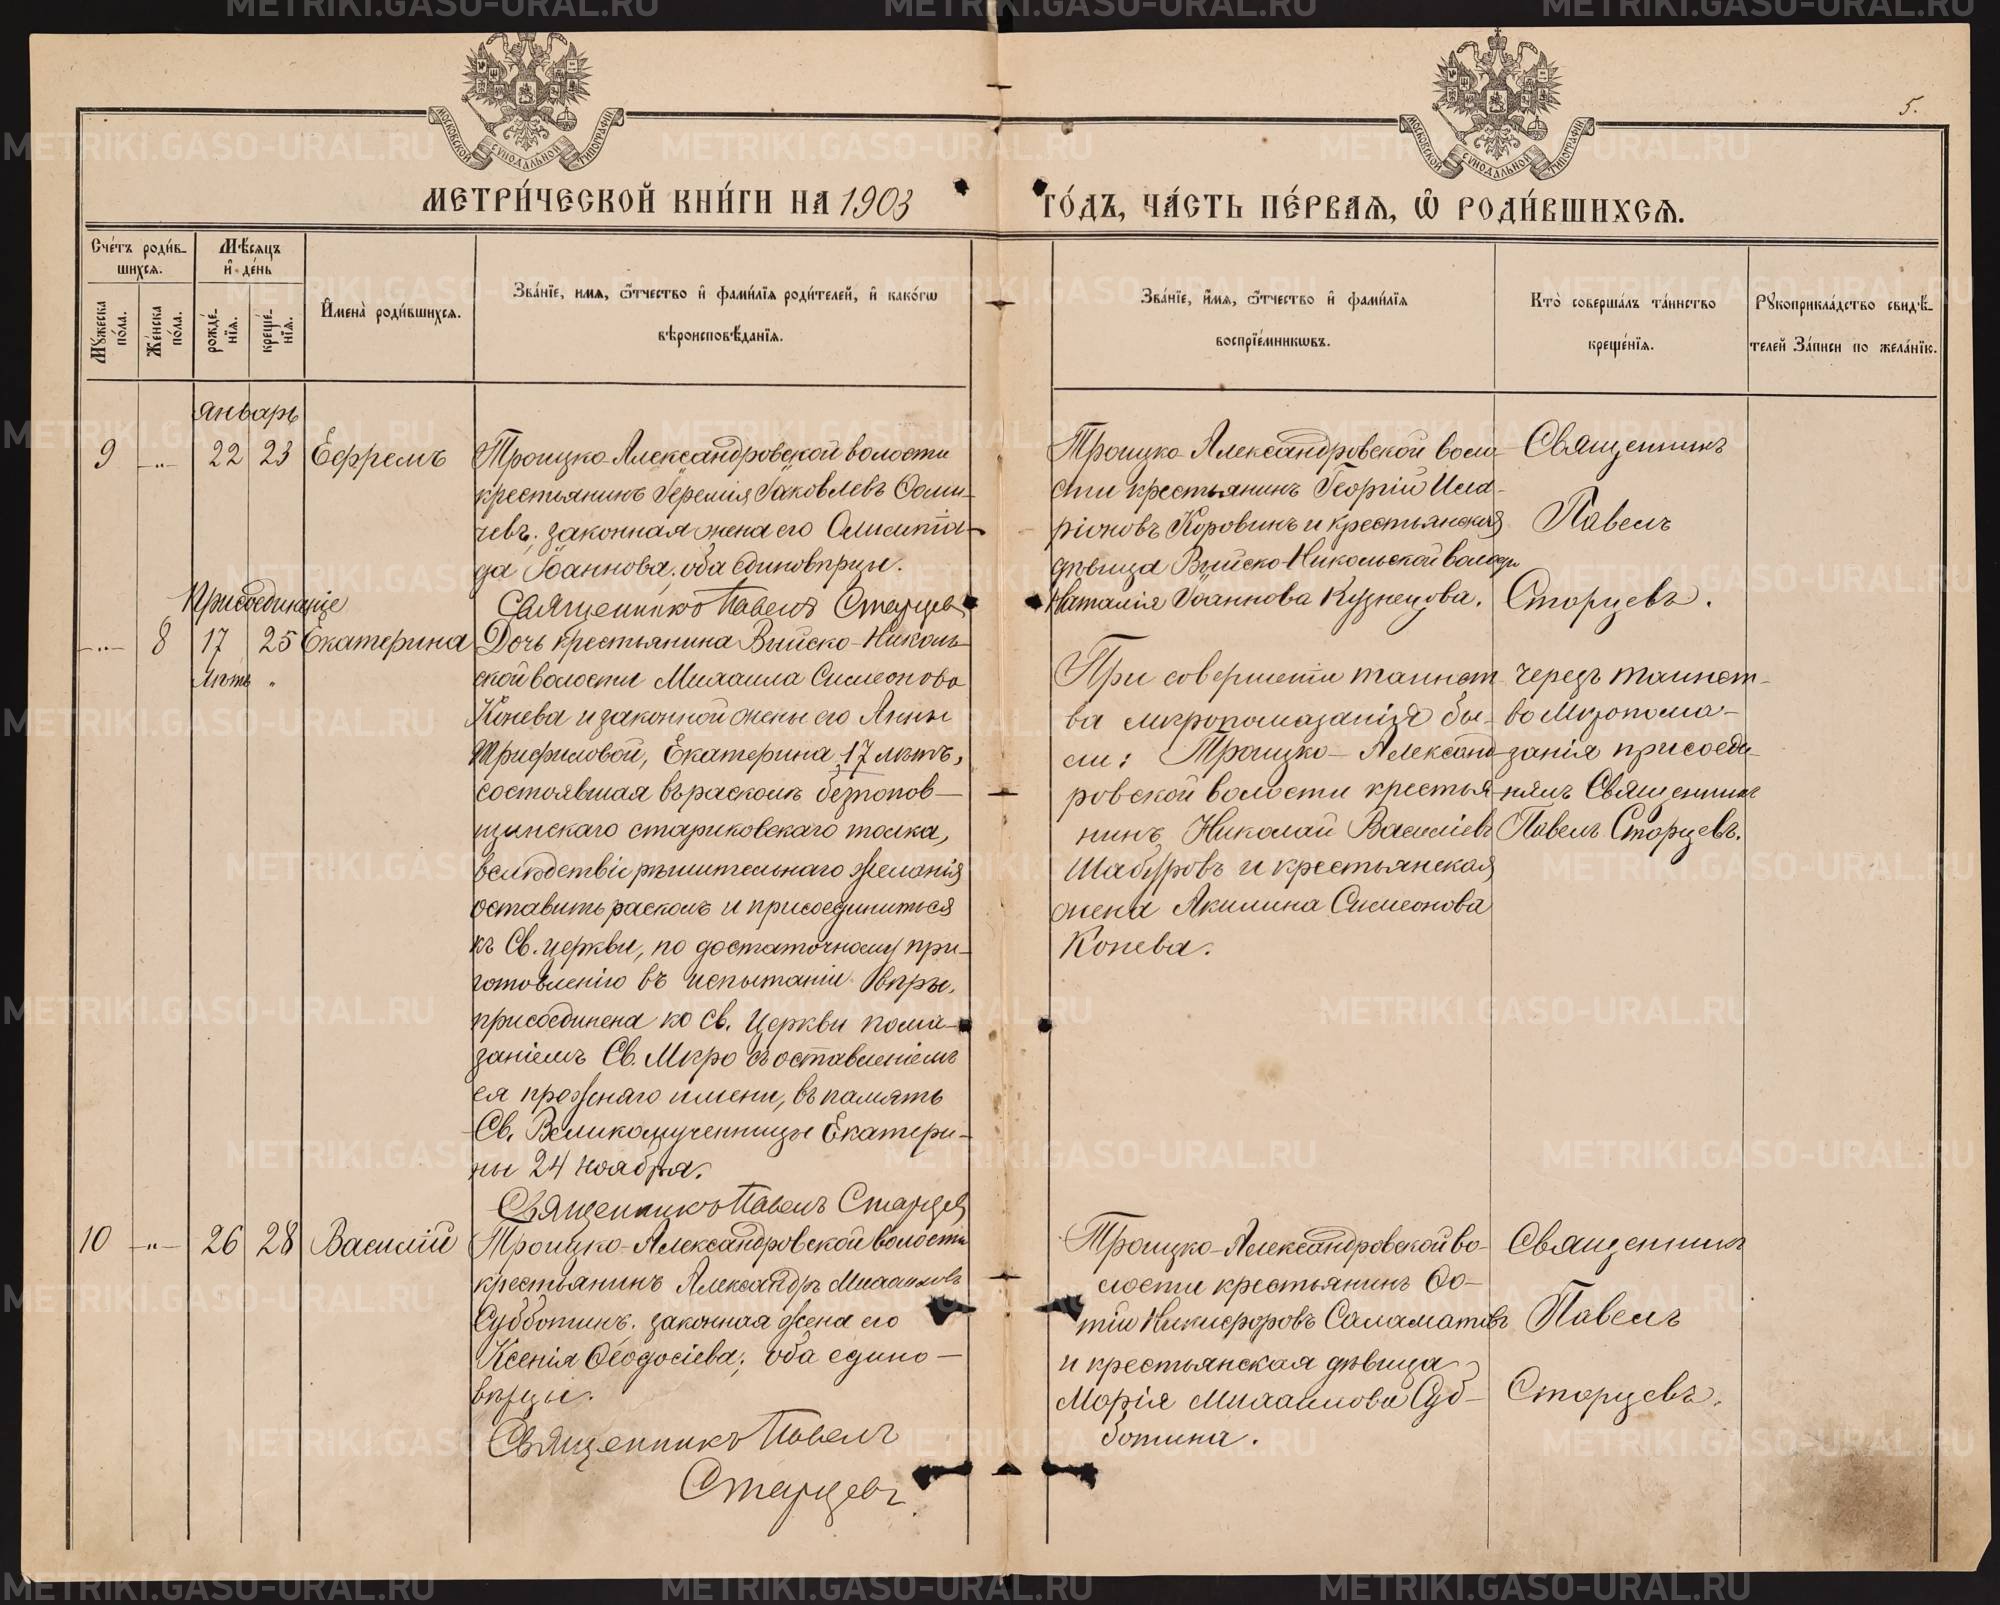 5.
МОСКОВСКОЙ СѴНОДАЛЬНОЙ ТИПОГРАФІИ
МОСКОВСКОЙ СѴНОДАЛЬНОЙ ТИПОГРАФІИ
МЕТРИ́ЧЕСКОЙ КНИ́ГИ НА 1903 ГО́ДЪ, ЧА́СТЬ ПЕ́РВАѦ, Ѡ҆ РОДИ́ВШИХСѦ.
Сче́тъ роди́в-
шихсѧ.
Мꙋ́жеска по́ла.
Же́нска по́ла.
Мѣ́сѧцъ
и҆ де́нь
рожде́-
нїѧ.
креще́-
нїѧ.
И҆мена̀ роди́вшихсѧ.
Зва́нїе, имѧ, ѻ҆́тчество и҆ фами́лїѧ роди́телей, и҆ како́гѡ
вѣроисповѣ́данїѧ.
Зва́нїе, и҆́мѧ, ѻ҆́тчество и҆ фами́лїѧ
воспрїе́мникѡвъ.
Кто̀ соверша́лъ та́инство
креще́нїѧ.
Рꙋкоприкла́дство свидѣ́-
телей За́писи по жела́нїю.
Январь
9 -"- 22 23 Ефремъ
Троицко-Александровской волости
крестьянинъ Іеремія Іаковлевъ Осми-
чевъ; законная жена его Олимпіа-
да Іоаннова, оба единовѣрцы.
Священникъ Павелъ Старцев
Троицко-Александровской воло-
сти крестьянинъ Георгій Ила-
ріоновъ Коровинъ и крестьянская
дѣвица Выйско-Никольской волости
Наталія Іоаннова Кузнецова.
Священникъ
Павелъ
Старцевъ.
Присоединеніе
-"- 8 17 25 Екатерина
лѣтъ "
Дочь крестьянина Выйско-Николь-
ской волости Михаила Симеонова
Конева и законной жены его Анны
Трифиловой, Екатерина 17 лѣтъ,
состоявшая въ расколѣ безпопов-
щинскаго стариковскаго толка,
вслѣдствіи рѣшительнаго желанія
оставить расколъ и присоединиться
къ Св. церкви, по достаточному при-
готовленію въ испытаніи вѣры,
присоединена ко Св. Церкви пома-
заніемъ Св. Мѵро съ оставленіемъ
ея прежняго имени, въ память
Св. Великомученницы Екатери-
ны 24 ноября.
Священникъ Павелъ Старцев
При совершеніи таинст-
ва мѵропомазанія бы-
ли: Троицко-Александ-
ровской волости крестья-
нинъ Николай Василіевъ
Шабуровъ и крестьянская
жена Акилина Симеонова
Конева.
Чрезъ таинст-
во Мѵропома-
занія присоеди-
нялъ Священникъ
Павелъ Старцевъ.
10 -"- 26 28 Василій
Троицко-Александровской волости
крестьянинъ Александръ Михаиловъ
Субботинъ, законная жена его
Ксенія Ѳеодосіева; оба едино-
вѣрцы.
Священникъ Павелъ
Старцевъ.
Троицко-Александровской во-
лости крестьянинъ Фо-
тій Никифоровъ Саламатовъ
и крестьянская дѣвица
Марія Михаилова Суб-
ботина.
Священникъ
Павелъ
Старцевъ.
METRIKI.GASO-URAL.RU